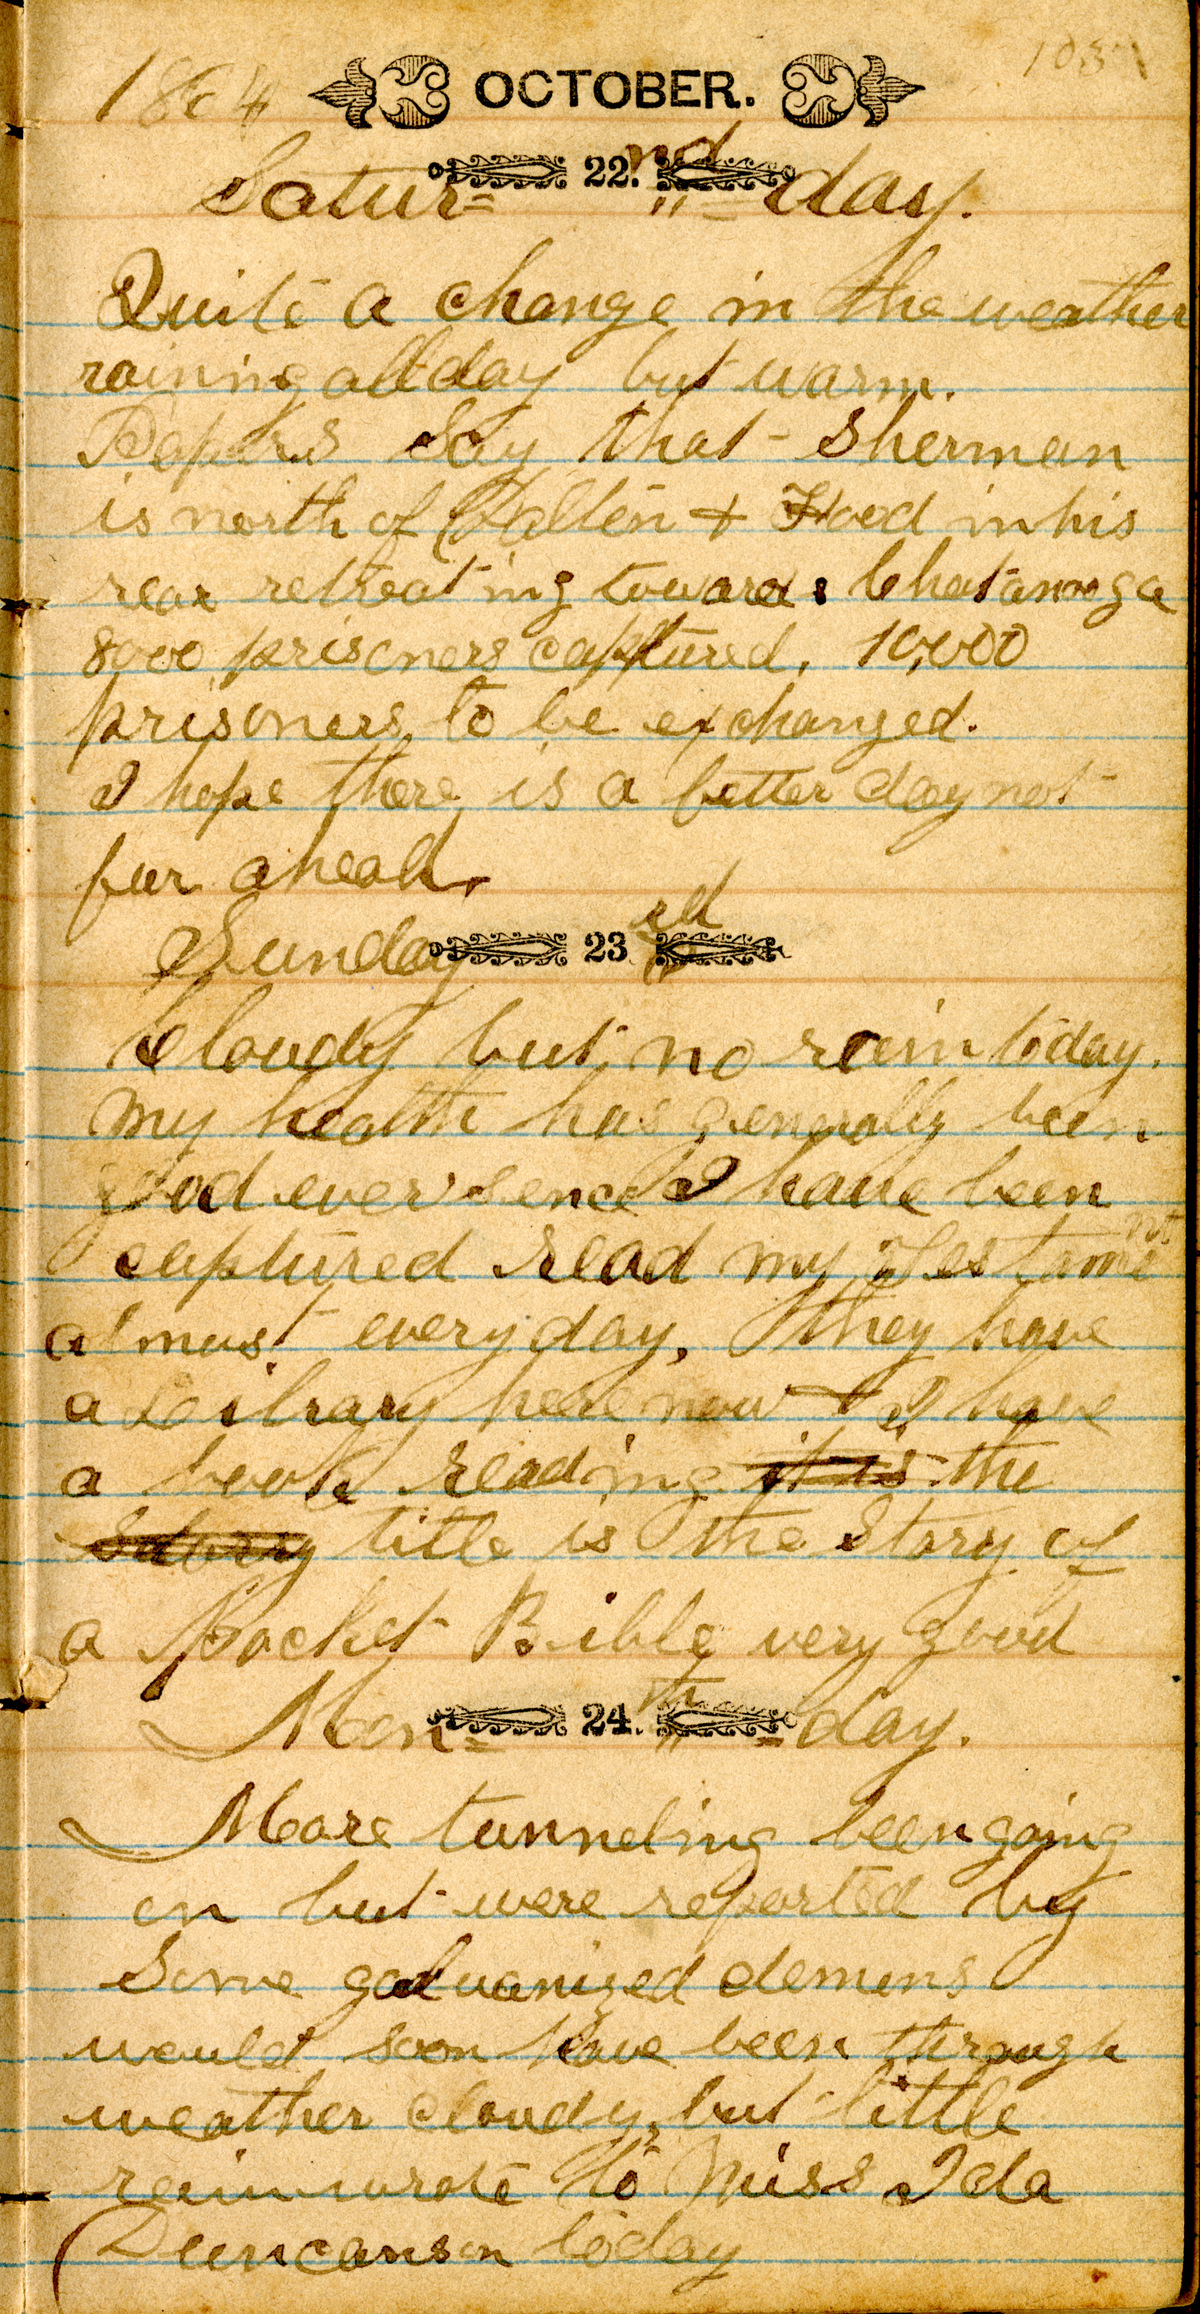 1864 OCTOBER.
Satur= 22.nd =day.
Quite a change in the weather
raining all day but warm.
Papers Say that Sherman
is north of Dalton + Hood in his
rear retreating towards Chatanooga
8000 prisoners captured. 10,000
prisoners to be exchanged.
I hope there is a better day not
far ahead.
Sunday 23rd
Cloudy but no rain today.
My health has generally been
good ever sence I have been
captured read my Testament
almost every day, they have
a Library here now + I have
a book reading it is the
Story title is the Story of
a Pocket Bible very good
Mon= 24.th =day.
More tunneling been going
on but were reported by
Some galvanized demons
would soon have been through
weather cloudy, but little
rain wrote to Miss Ida
Duncanson today